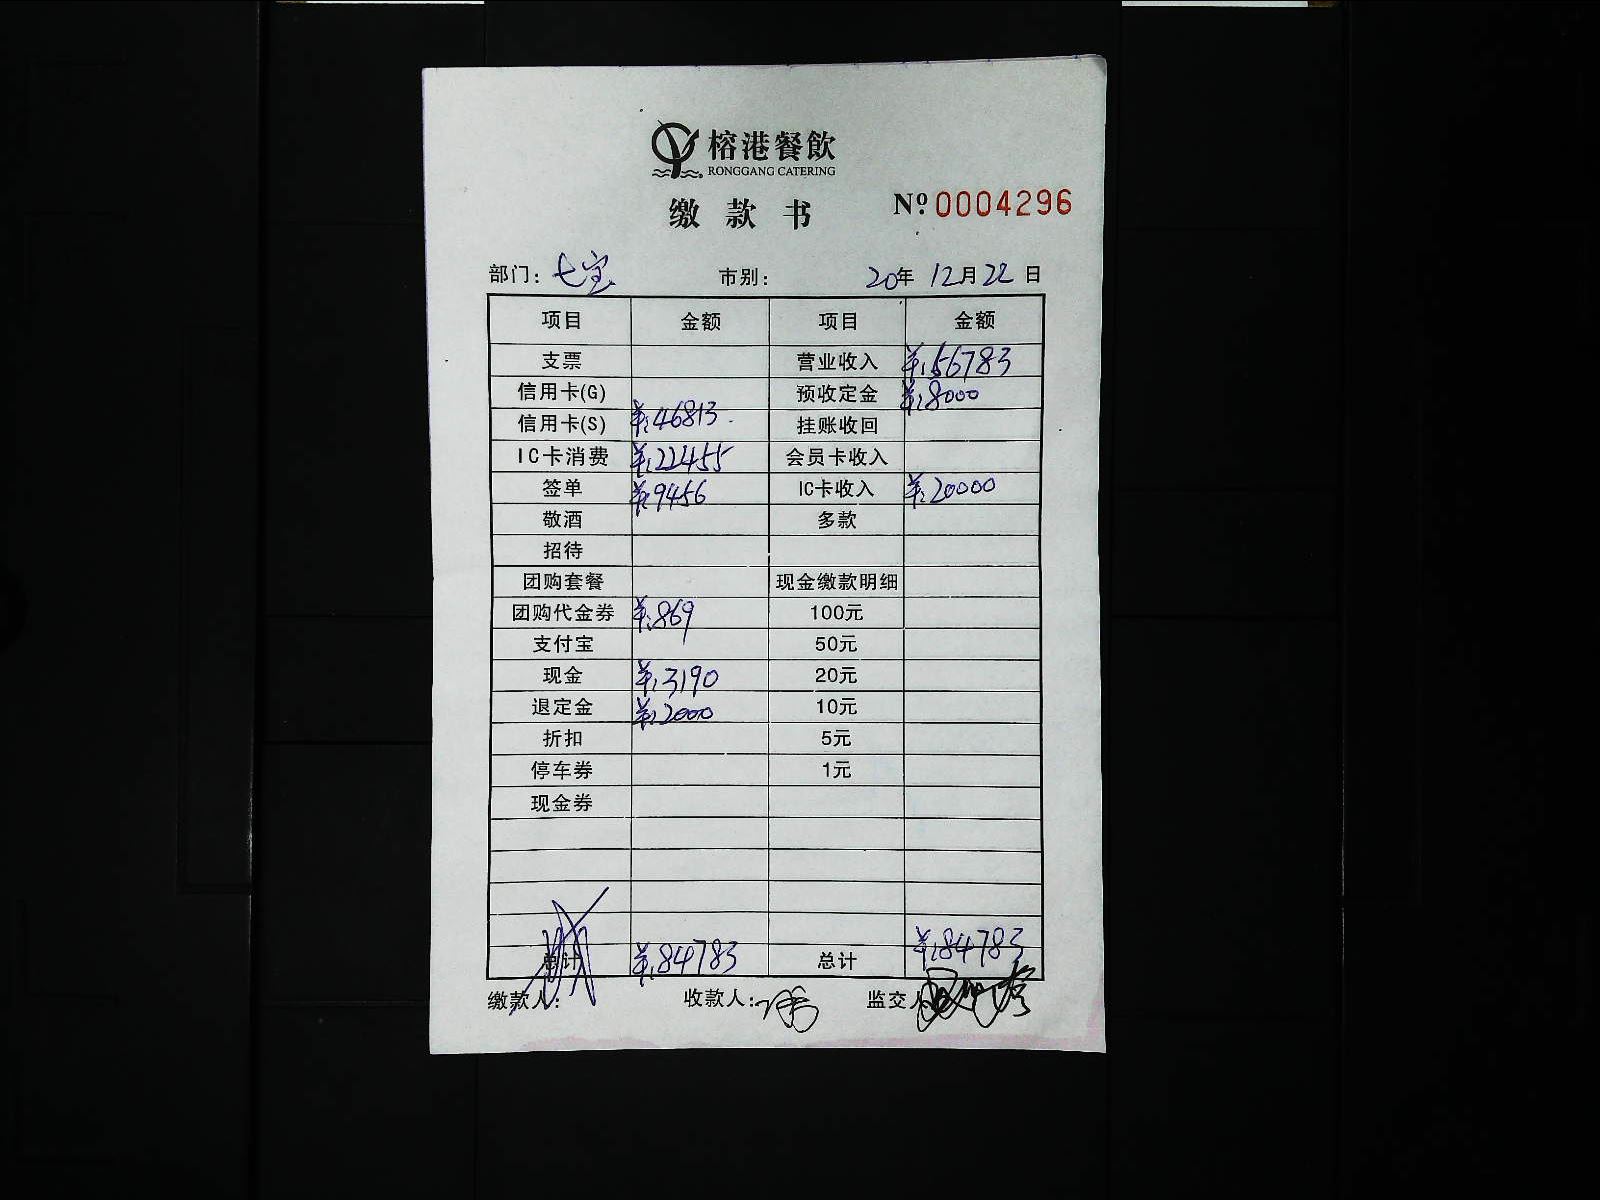 榕港餐飲
RONGGANG CATERING
缴款书 Nº 0004296
部门: 七宝 市别: 20年 12月22日
项目 金额 项目 金额
支票 营业收入 ¥:56783
信用卡(G) 预收定金 ¥:8000
信用卡(S) ¥:46813 挂账收回
IC卡消费 ¥:22455 会员卡收入
签单 ¥:9456 IC卡收入 ¥:20000
敬酒 多款
招待
团购套餐 现金缴款明细
团购代金券 ¥:869 100元
支付宝 50元
现金 ¥:3190 20元
退定金 ¥:2000 10元
折扣 5元
停车券 1元
现金券
总计 ¥:84783 总计 ¥:84783
缴款人: 收款人: 监交人